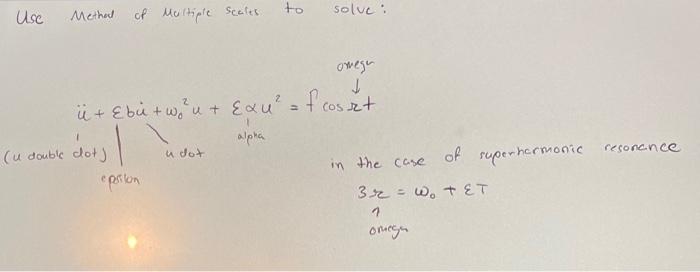 Use Method of Multiple Scales to solve:
omega
↓
ü + εbu̇ + ω₀²u + εαu² = f cosΩt
(u double dot) u dot alpha
epsilon
in the case of superharmonic resonance
3Ω = ω₀ + ετ
↑
omega